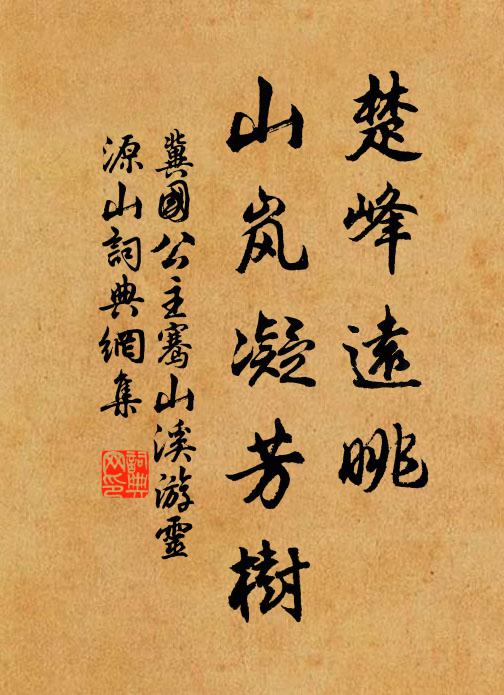 楚峰遠眺
山岚凝芳樹
冀國公主驀山溪游靈
源山詞典網集
詞典
网印